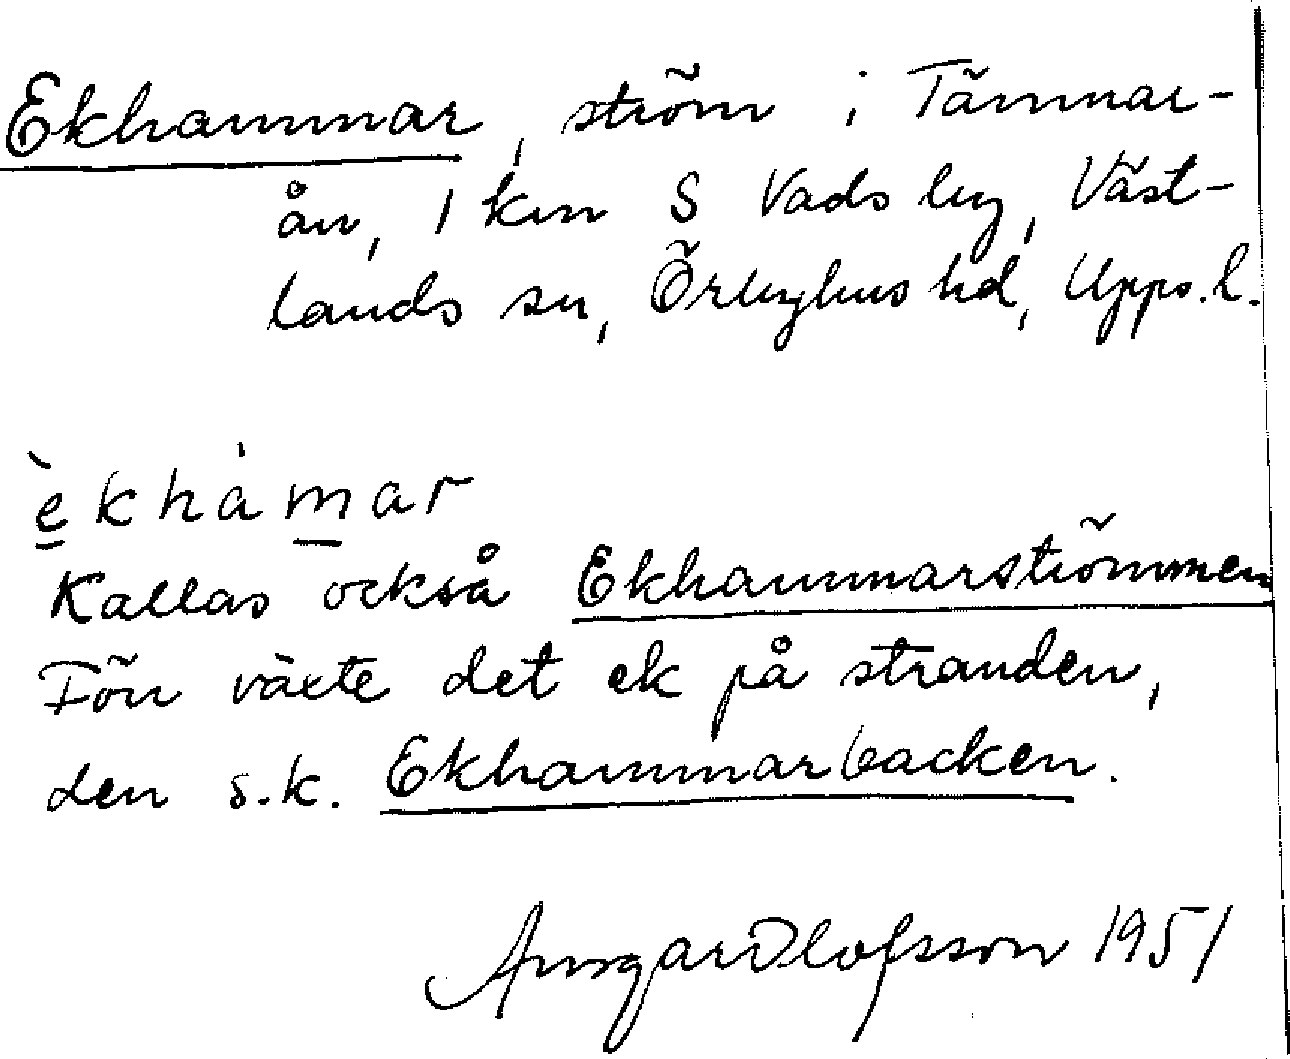 Ekhammar, ström i Tämnar-
ån, 1 km S Vads by, Väst-
lands sn, Örbyhus hd, Upps. l.
èkhàmar
Kallas också Ekhammarströmmen
Förr växte det ek på stranden,
den s.k. Ekhammarbacken.
Ansgar Olofsson 1951